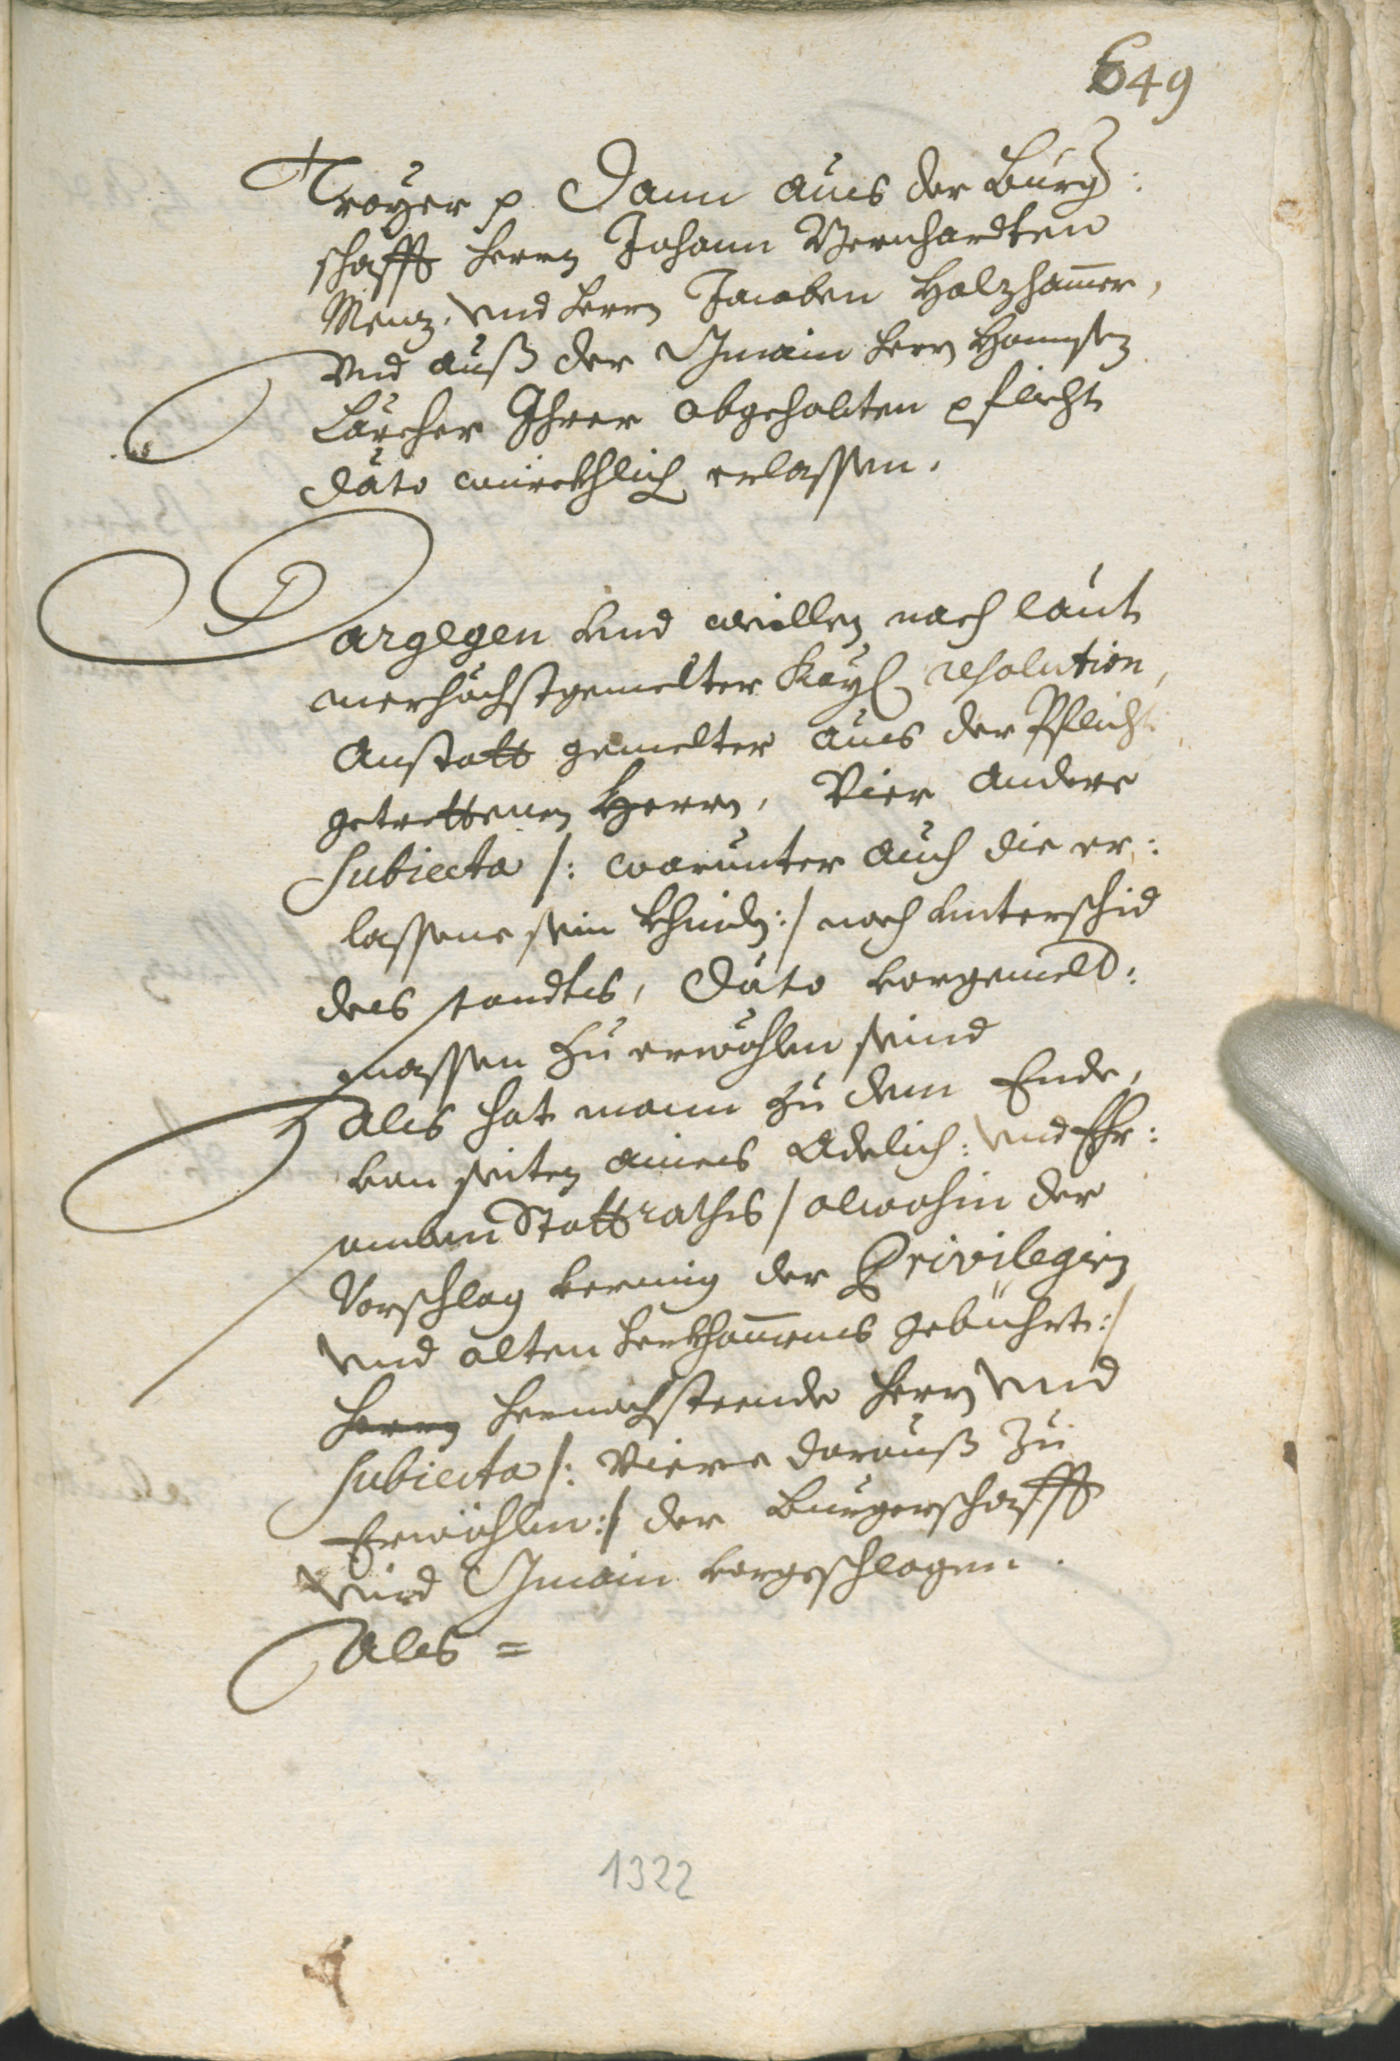 649
Troyer p Dann aus der Burg:
schafft Herrn Johann Bernhardten
Menz, und Herrn Jacoben Holzhamer,
und auß der Gmain Herrn Hannsen
Lärcher Ihrer abgehabten pflicht
dato würckhlich erlassen.
Dargegen und willen nach laut
merhöchstgemelter Kayl resolution,
Anstatt gemelter aus der Pflicht
getrettenen Herrn, Vier andere
Subiecta /: warunter auch die er:
lassene sein khinden :/ nach unterschid
des standts, dato vorgemelt:
massen zu erwöhlen seind
als hat mann zu dem Ende,
von seiten aines Adelich: und Ehr:
samben Stattraths / alwohin der
Vorschlag vermig der Privilegien
und alten herkhomens gebührt :/
Herrn hernachsteende Herrn und
Subiecta /: Viere darauß zu
Erwöhlen :/ der Burgerschafft
und Gmain vorgeschlagen.
Als =
1322